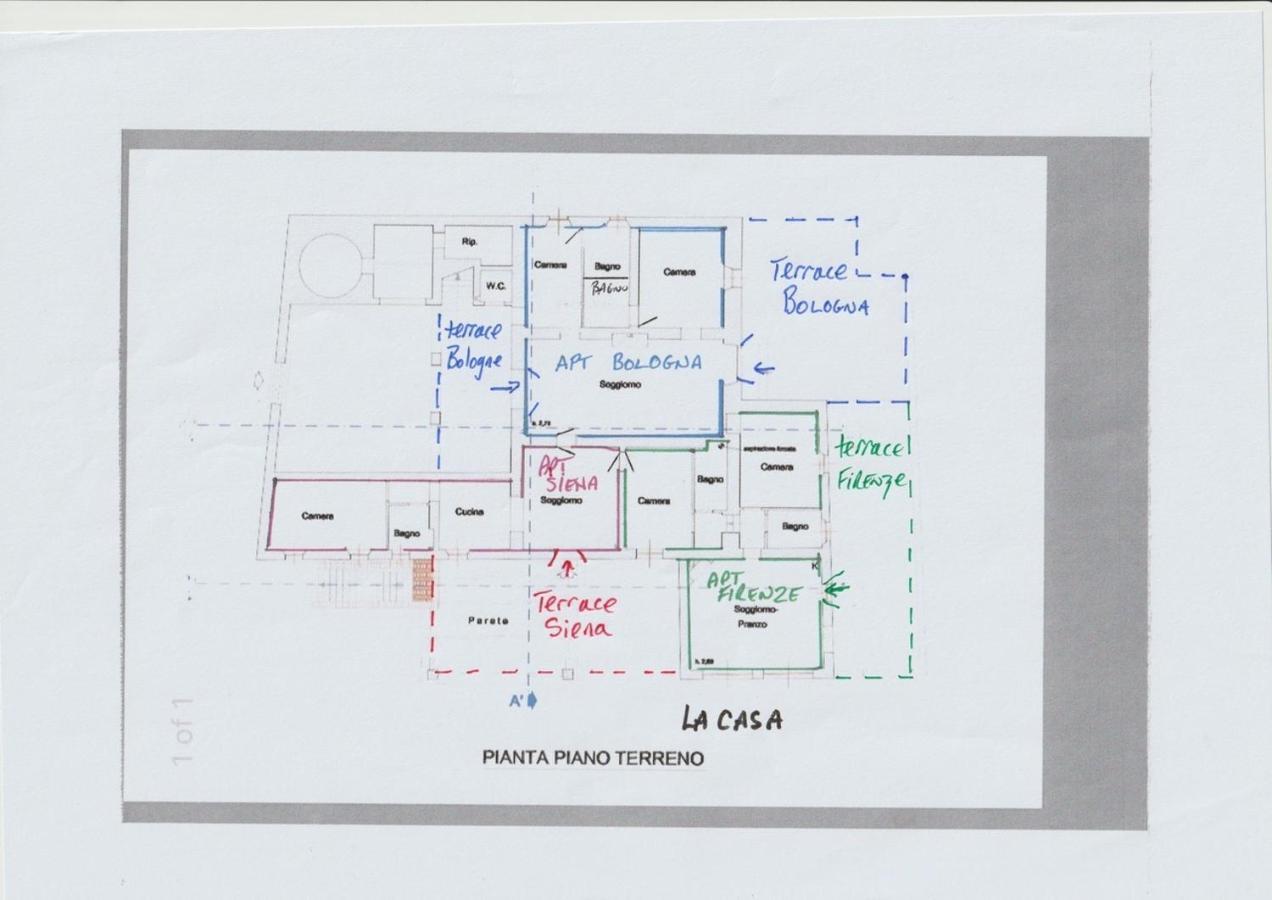 Rip.
W.C.
Camera
Bagno
BAGNO
Camera
Terrace
BOLOGNA
terrace
Bologne
APT BOLOGNA
Soggiorno
h. 2,70
APT
SIENA
Soggiorno
Camera
Bagno
Cucina
Camera
Bagno
Camera
Bagno
terrace
FIRENZE
APT
FIRENZE
Soggiorno-
Pranzo
K
Terrace
Siena
A'
1 of 1
LA CASA
PIANTA PIANO TERRENO